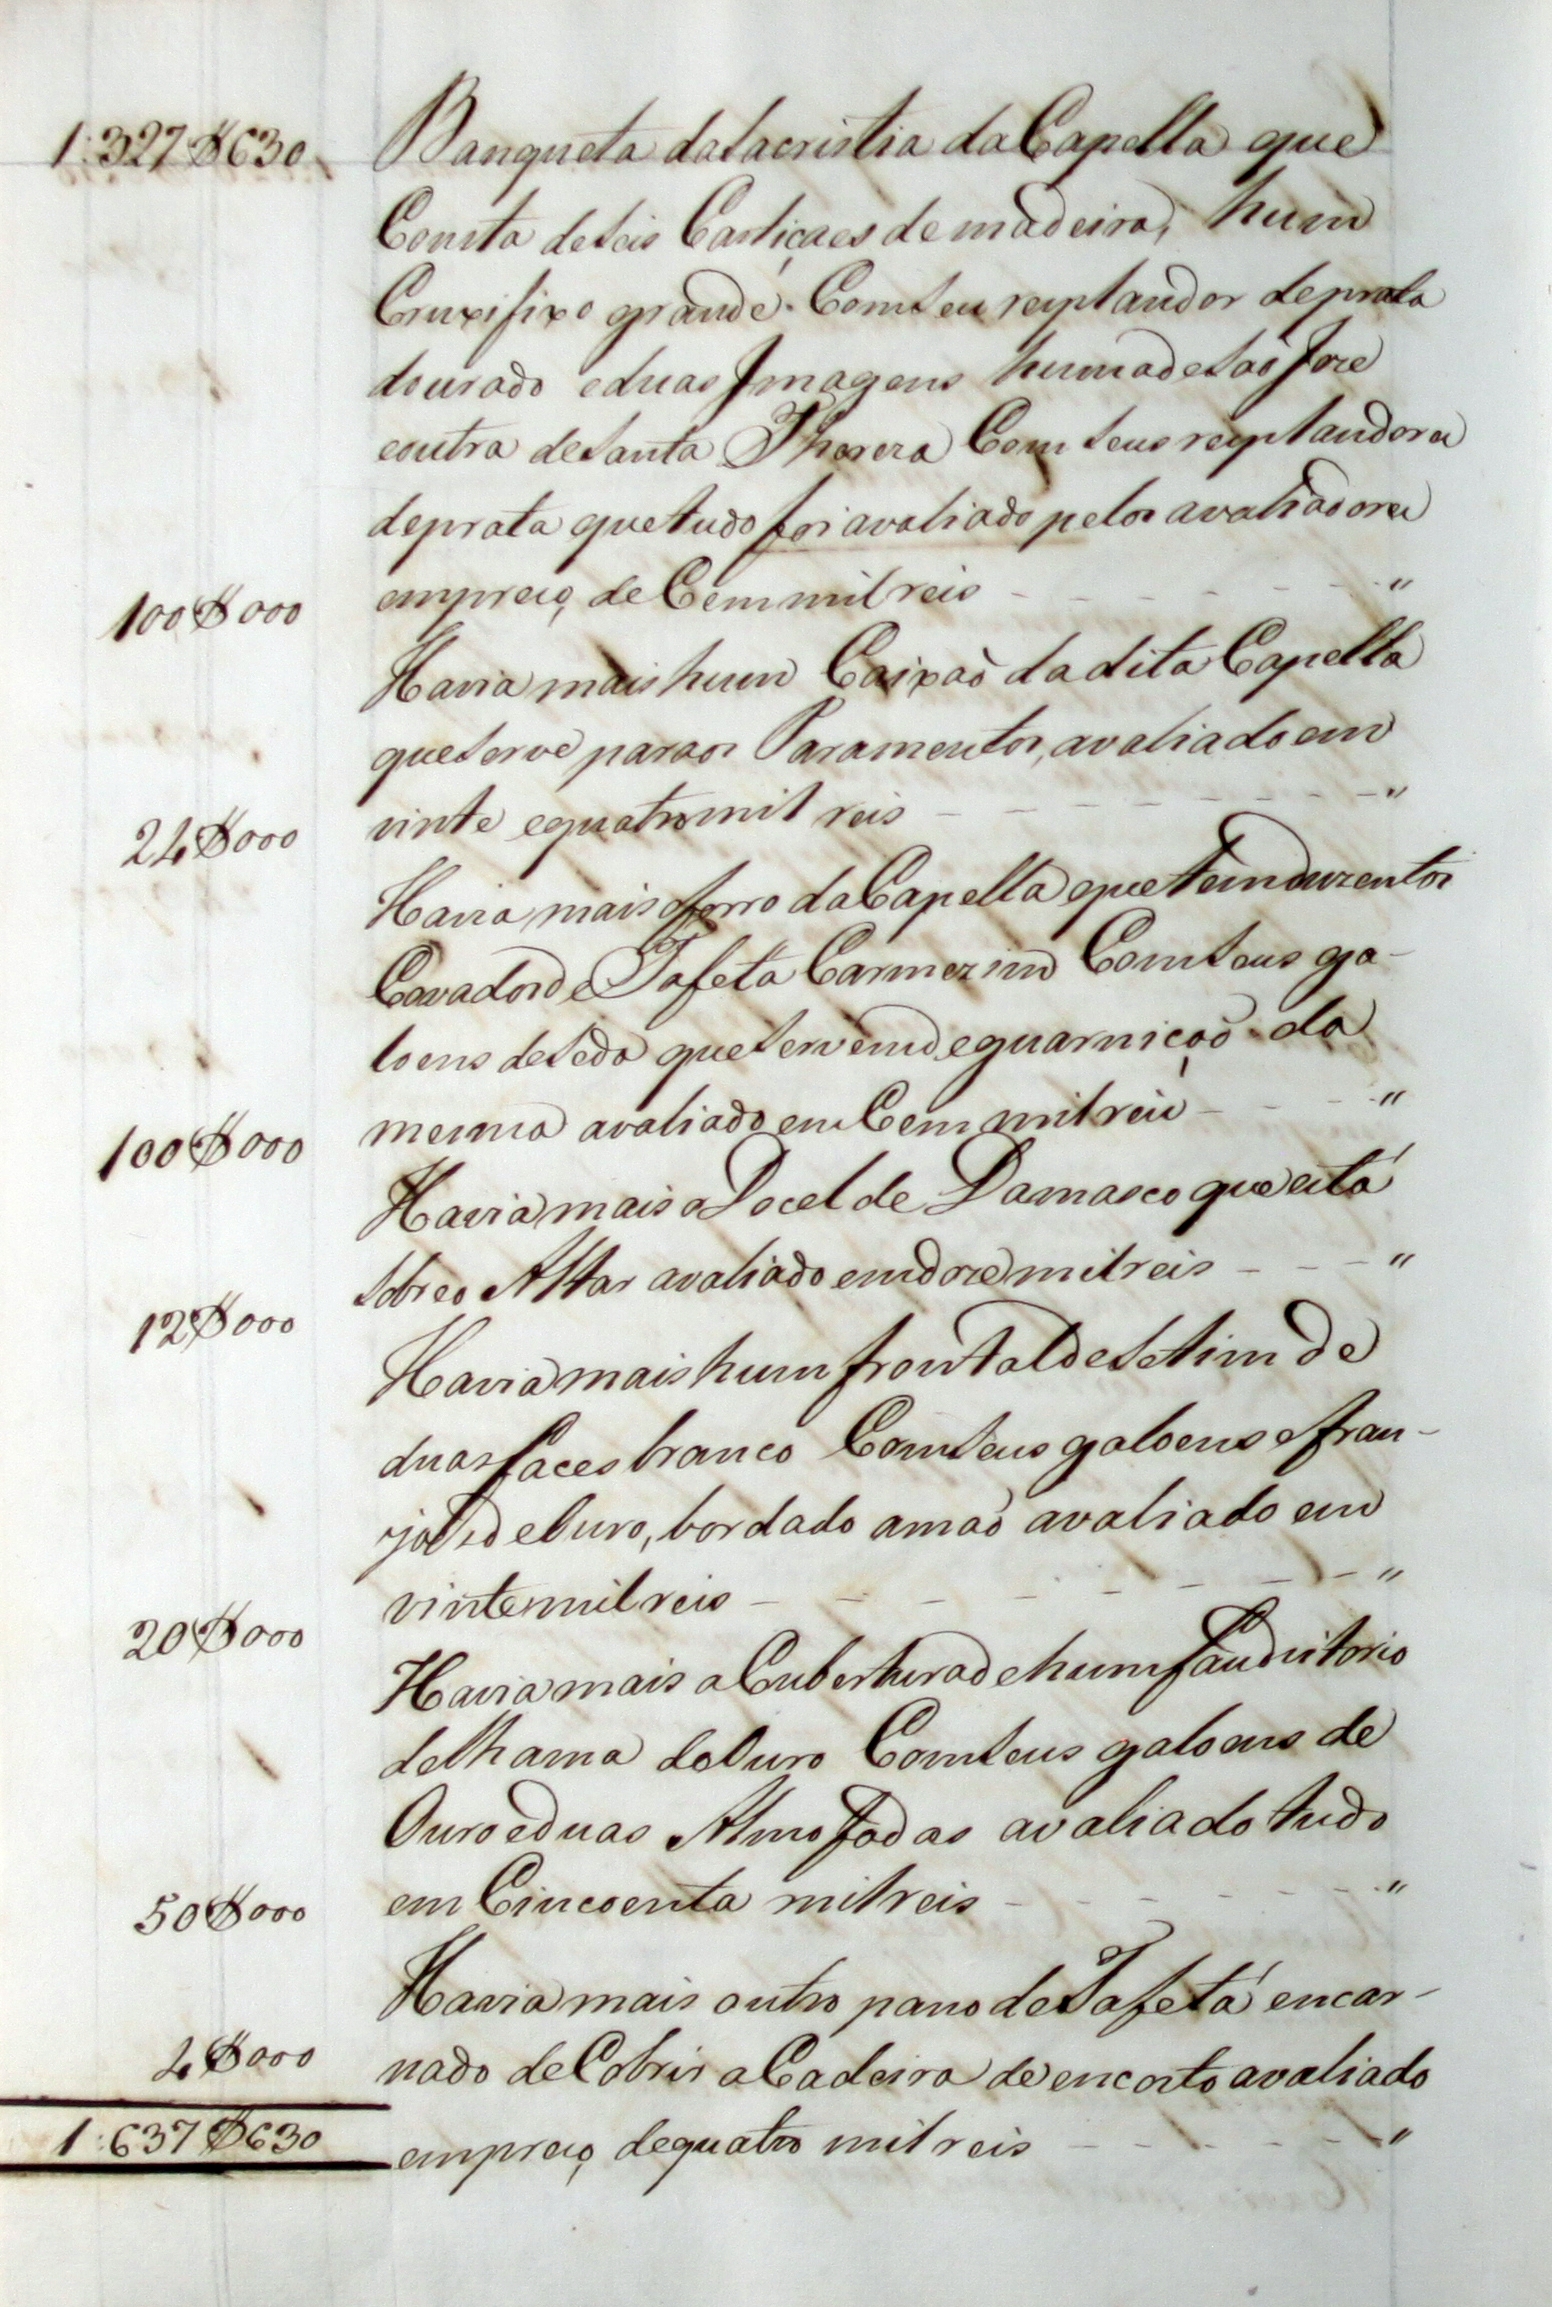 1:327$630 Banqueta da Sacristia da Capella que
Consta de seis Castiçaes de madeira, hum
Cruxifixo grande. Com seu resplandor de prata
dourado e duas Imagens huma de Saõ Joze
e outra de Santa Thereza Com seus resplandores
de prata que tudo foi avaliado pelos avaliadores
100$000 em preço de Cem mil reis - - - - - - - "
Havia mais hum Caixaõ da dita Capella
que serve para os Paramentos, avaliado em
24$000 vinte e quatro mil reis - - - - - - - - "
Havia mais o forro da Capella que tem duzentos
Covados de Tafeta Carmezim Com seus ga-
loens de seda que servem de guarniçaõ da
100$000 mesma avaliado em Cem mil reis - - - - "
Havia mais o Docel de Damasco que está
12$000 sobre o Altar avaliado em doze mil reis - - - "
Havia mais hum frontal de Setim de
duas faces branco Com seus galoens e fran-
jas de Ouro, bordado a maõ avaliado em
20$000 vinte mil reis - - - - - - - - "
Havia mais a Cubertura de hum faudistorio
de lhama de Ouro Com seus galoens de
Ouro e duas Almofadas avaliado tudo
50$000 em Cincoenta mil reis - - - - - - - "
Havia mais outro pano de Tafetá encar-
4$000 nado de Cobrir a Cadeira de encosto avaliado
1:637$630 em preço de quatro mil reis - - - - - - "